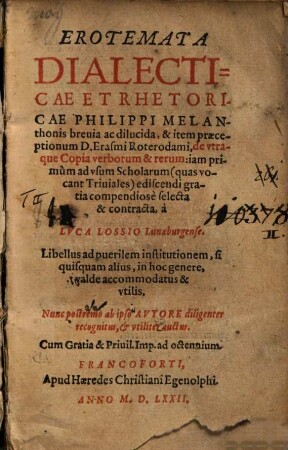 EROTEMATA
DIALECTI=
CAE ET RHETORI-
CAE PHILIPPI MELAN
thonis breuia ac dilucida, & item præce-
ptionum D, Erasmi Roterodami, de vtra-
que Copia verborum & rerum: iam pri-
mùm ad vsum Scholarum (quas vo-
cant Triuiales) ediscendi gra-
tia compendiosè selecta
& contracta, à
LVCA LOSSIO Lunæburgense.
Libellus ad puerilem institutionem, si
quisquam alius, in hoc genere,
valde accommodatus &
vtilis,
Nunc postremo ab ipso AVTORE diligenter
recognitus, & vtiliter auctus.
Cum Gratia & Priuil. Imp. ad octennium.
FRANCOFORTI,
Apud Hæredes Christiani Egenolphi.
ANNO M. D. LXXII.